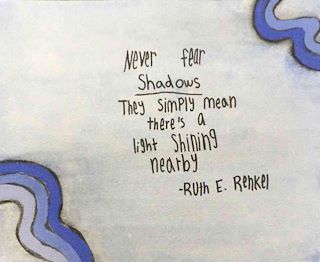 Never fear
Shadows
They Simply mean
there's a
light Shining
nearby
-Ruth E. Renkel